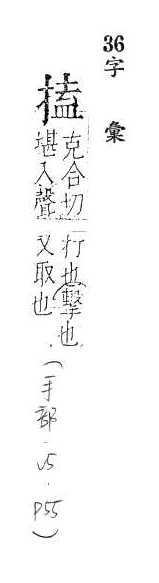 36
字彙
搕
克合切打也擊也
堪入聲又取也
(手部.v5.P55)